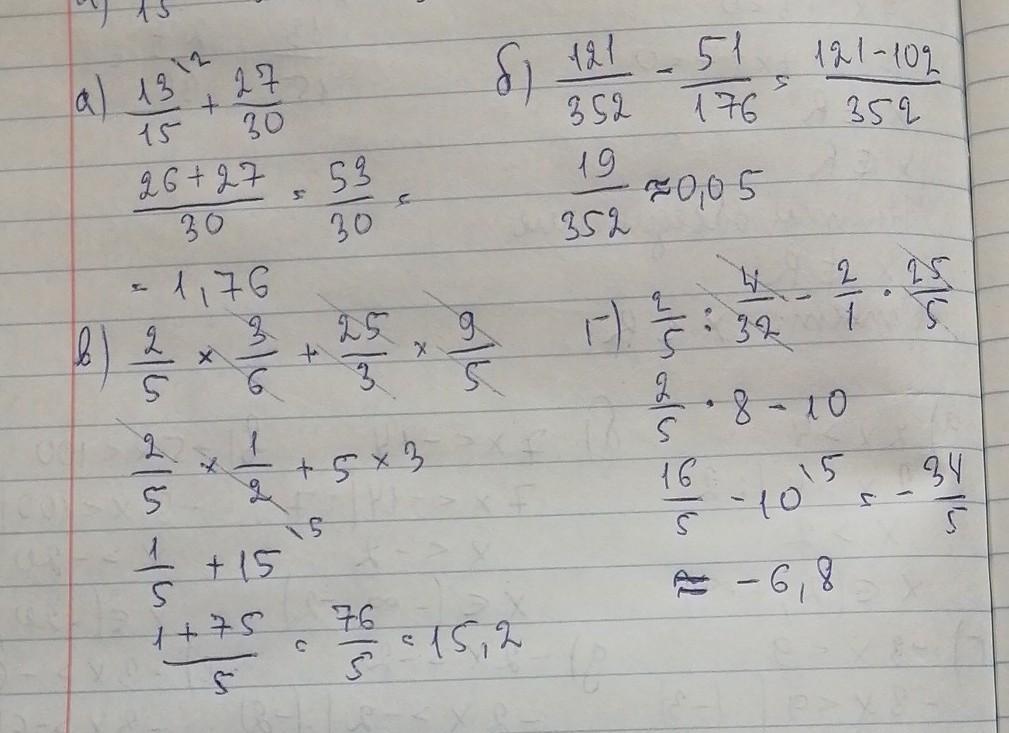 15
а) 13/15 \2 + 27/30
26+27/30 = 53/30 =
= 1,76
б) 121/352 - 51/176 = 121-102/352
19/352 ≈ 0,05
в) 2/5 × 3/6 + 25/3 × 9/5
2/5 × 1/2 + 5 × 3
1/5 + 15 \5
1+75/5 = 76/5 = 15,2
г) 2/5 : 4/32 - 2/1 · 25/5
2/5 · 8 - 10
16/5 - 10 \5 = - 34/5
≈ -6,8